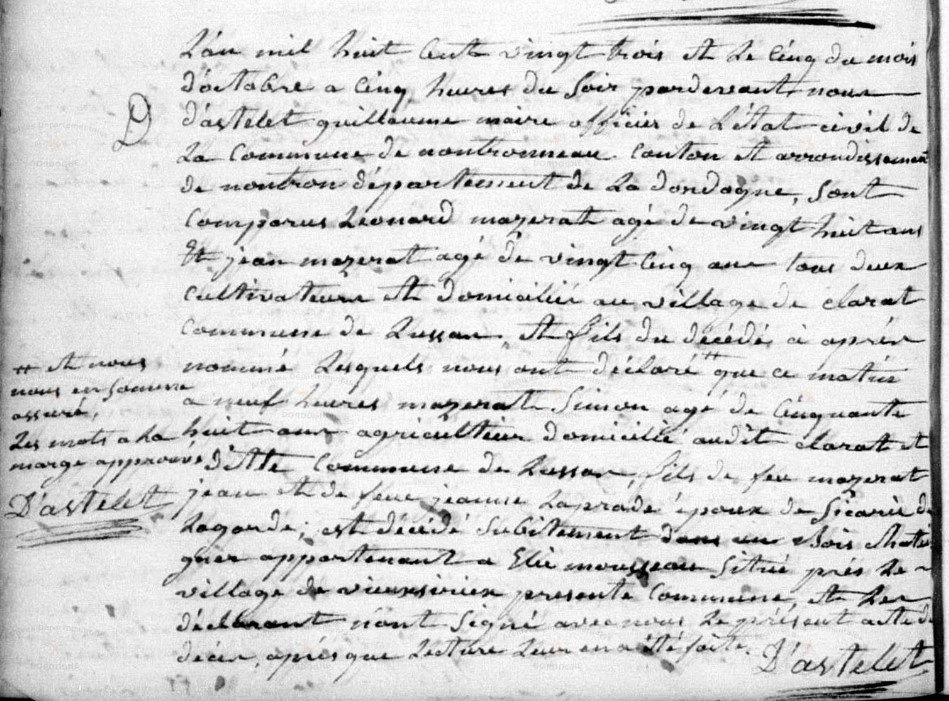 L'an mil huit Cent vingt trois et Le Cinq du mois
d'octobre a Cinq heures du Soir pardevant nous
D
d'astelet guillaume maire officier de L'état civil de
La Commune de nontronneau Canton et arrondissement
de nontron département de La dordogne, Sont
Comparus Leonard mazerat agé de vingt huit ans
Et jean mazerat agé de vingt Cinq ans tous deux
Cultivateurs et domicilié au village de clarat
Commune de Lussas, et fils du décédé ci après
nommé Lesquels nous ont déclaré # que ce matin
a neuf heures mazerat Simon agé de Cinquante
huit ans agriculteur domicilié audit clarat et
ditte Commune de Lussas, fils de feu mazerat
jean et de feue jeanne Laprade époux de Sicarie de
Lagarde; est décédé Subitement dans un Bois Chatai
gner appartenant a Elie mousseau Situé près Le
village de vieuxsioux presente Commune, et Les
déclarant n'ont Signé avec nous Le présent acte de
décès, après que Lecture Leur en a été faite.
D'astelet
# et nous
nous en sommes
assuré,
Les mots a la
marge approuvés
D'astelet